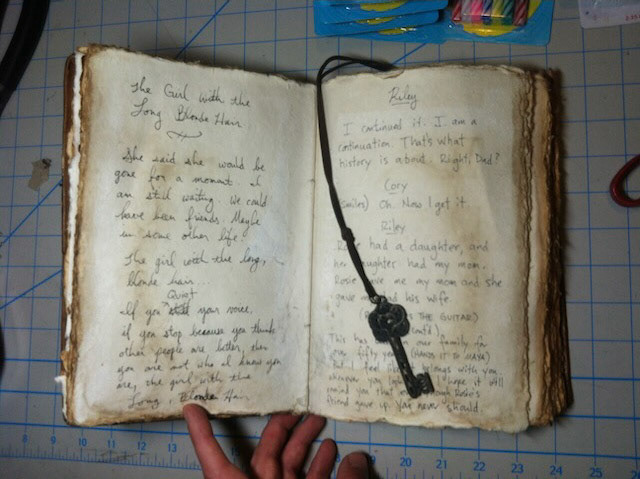 The Girl with the
Long Blonde Hair
She said she would be
gone for a moment. I
am still waiting. We could
have been friends. Maybe
in some other life.
The girl with the long,
blonde hair...
Quiet
If you still your voice,
if you stop because you think
other people are better, then
you are not who I know you
are, the girl with the
Long Blonde Hair
Riley
I continued it. I am a
continuation. That's what
history is about. Right, Dad?
Cory
(smiles) Oh. Now I get it.
Riley
had a daughter, and
her daughter had my mom.
Rosie gave me my mom and she
gave his wife.
THE GUITAR)
This has our family for
fifty (HANDS IT TO MAYA)
But I feel belongs with you
you I hope it will
remind you that Rosie's
friend gave up you never should.
10 11 12 13 14 15 20 21 22 23 24 25 26